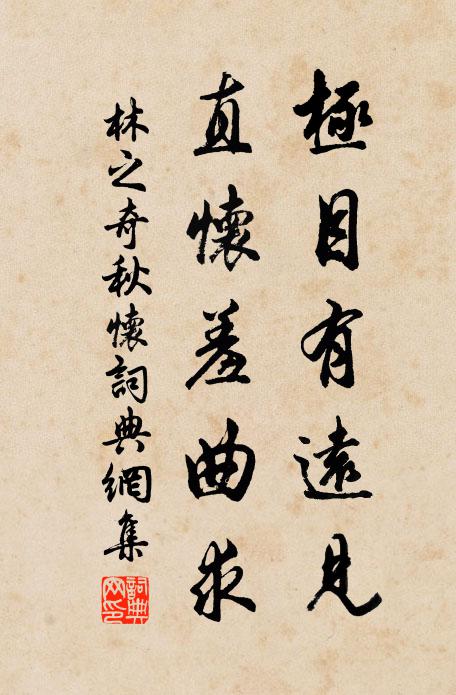 極目有遠見
直懷羞曲求
林之奇秋懷詞典網集
詞典
网印